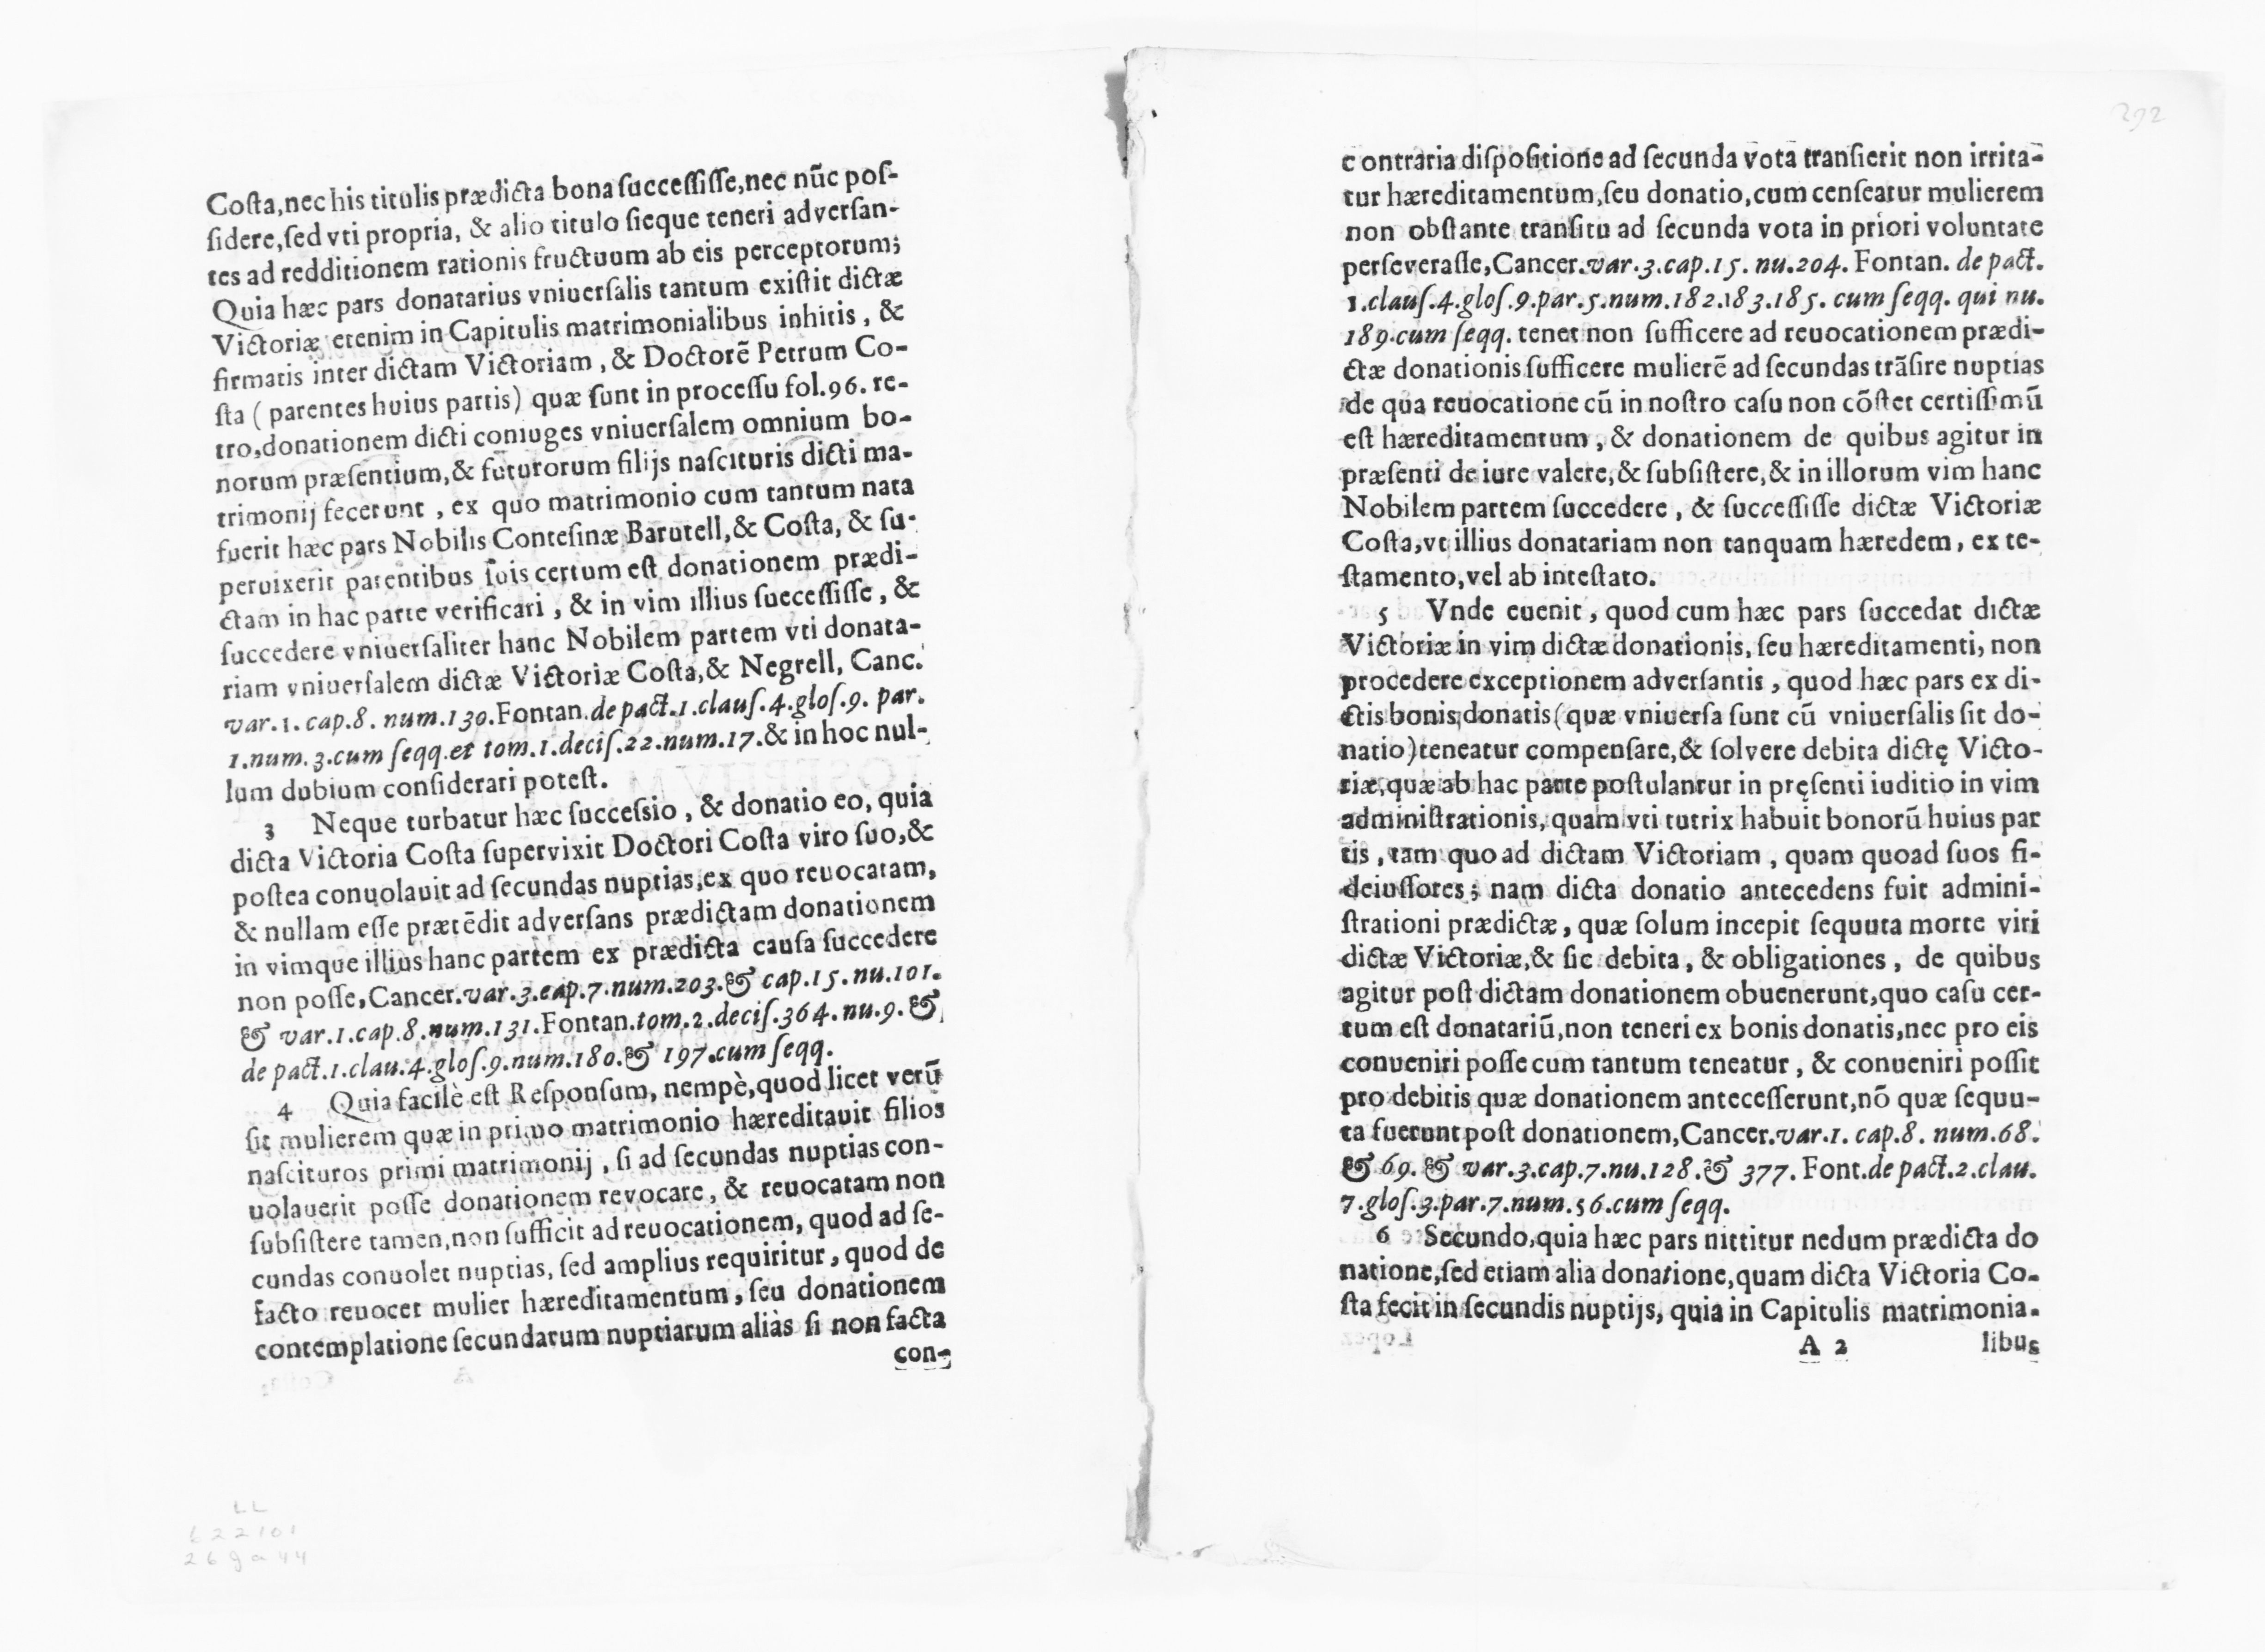 Costa,nec his titulis prædicta bona successisse,nec nũc pos-
sidere,sed vti propria, & alio titulo sicque teneri adversan-
tes ad redditionem rationis fructuum ab eis perceptorum;
Quia hæc pars donatarius vniuersalis tantum existit dictæ
Victoriæ etenim in Capitulis matrimonialibus inhitis, &
firmatis inter dictam Victoriam, & Doctorẽ Petrum Co-
sta (parentes huius partis) quæ sunt in processu fol.96. re-
tro,donationem dicti coniuges vniuersalem omnium bo-
norum præsentium,& futurorum filijs nascituris dicti ma-
trimonij fecerunt, ex quo matrimonio cum tantum nata
fuerit hæc pars Nobilis Contesinæ Barutell,& Costa, & su-
peruixerit parentibus suis certum est donationem prædi-
ctam in hac parte verificari, & in vim illius successisse, &
succedere vniuersaliter hanc Nobilem partem vti donata-
riam vniuersalem dictæ Victoriæ Costa,& Negrell, Canc.
var.1. cap.8. num.130.Fontan.de pact.1.claus.4.glos.9. par.
1.num.3.cum seqq.et tom.1.decis.22.num.17.& in hoc nul-
lum dubium considerari potest.
3 Neque turbatur hæc successio, & donatio eo, quia
dicta Victoria Costa supervixit Doctori Costa viro suo,&
postea conuolauit ad secundas nuptias,ex quo reuocatam,
& nullam esse prætẽdit adversans prædictam donationem
in vimque illius hanc partem ex prædicta causa succedere
non posse,Cancer.var.3.cap.7.num.203.& cap.15.nu.101.
& var.1.cap.8.num.131.Fontan.tom.2.decis.364.nu.9.&
de pact.1.clau.4.glos.9.num.180.& 197.cum seqq.
4 Quia facilè est Responsum, nempè,quod licet verũ
sit mulierem quæ in primo matrimonio hæreditauit filios
nascituros primi matrimonij, si ad secundas nuptias con-
uolauerit posse donationem revocare, & reuocatam non
subsistere tamen,non sufficit ad reuocationem, quod ad se-
cundas conuolet nuptias, sed amplius requiritur, quod de
facto reuocet mulier hæreditamentum, seu donationem
contemplatione secundarum nuptiarum aliàs si non facta
con-
LL
622101
26 g a 44
292
contraria dispositione ad secunda vota transierit non irrita-
tur hæreditamentum,seu donatio,cum censeatur mulierem
non obstante transitu ad secunda vota in priori voluntate
perseverasse,Cancer.var.3.cap.15. nu.204. Fontan. de pact.
1.claus.4.glos.9.par.5.num.182.183.185. cum seqq. qui nu.
189.cum seqq. tenet non sufficere ad reuocationem prædi-
ctæ donationis sufficere mulierẽ ad secundas trãsire nuptias
de qua reuocatione cũ in nostro casu non cõstet certissimũ
est hæreditamentum, & donationem de quibus agitur in
præsenti de iure valere,& subsistere,& in illorum vim hanc
Nobilem partem succedere, & successisse dictæ Victoriæ
Costa,vt illius donatariam non tanquam hæredem, ex te-
stamento,vel ab intestato.
5 Vnde euenit, quod cum hæc pars succedat dictæ
Victoriæ in vim dictæ donationis, seu hæreditamenti, non
procedere exceptionem adversantis, quod hæc pars ex di-
ctis bonis donatis (quæ vniuersa sunt cũ vniuersalis sit do-
natio)teneatur compensare,& solvere debita dictę Victo-
riæ,quæ ab hac parte postulantur in pręsenti iuditio in vim
administrationis, quam vti tutrix habuit bonorũ huius par
tis, tam quo ad dictam Victoriam, quam quoad suos fi-
deiussores; nam dicta donatio antecedens fuit admini-
strationi prædictæ, quæ solum incepit sequuta morte viri
dictæ Victoriæ,& sic debita, & obligationes, de quibus
agitur post dictam donationem obuenerunt,quo casu cer-
tum est donatariũ,non teneri ex bonis donatis,nec pro eis
conueniri posse cum tantum teneatur, & conueniri possit
pro debitis quæ donationem antecesserunt,nõ quæ sequu-
ta fuerunt post donationem,Cancer.var.1. cap.8. num.68.
& 69.& var.3.cap.7.nu.128.& 377. Font.de pact.2.clau.
7.glos.3.par.7.num.56.cum seqq.
6 Secundo,quia hæc pars nittitur nedum prædicta do
natione,sed etiam alia donatione,quam dicta Victoria Co-
sta fecit in secundis nuptijs, quia in Capitulis matrimonia-
A 2 libus